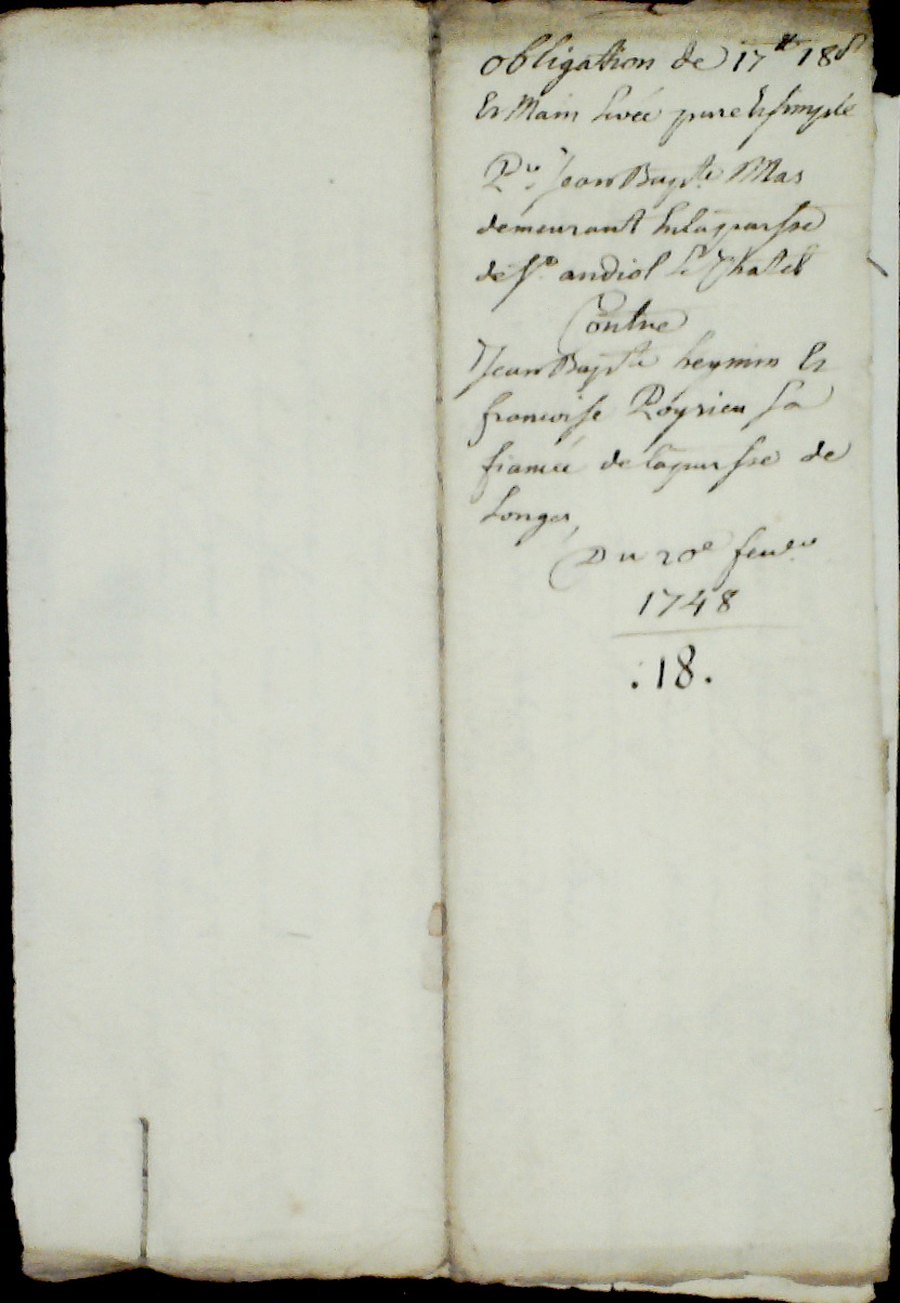 obligation de 17ᵗᵗ 18ˢ
Et Main Levée pure Et simple
Pʳ. Jean Baptᵗᵉ Mas
demeurant En la parsse
de Sᵗ. andiol Le Chatel
Contre
Jean Baptᵗᵉ heymin Et
francoise Poyrieu sa
fiancée de la parsse de
Longes,
Du 20ᵉ feuʳᵉʳ
1748
.18.